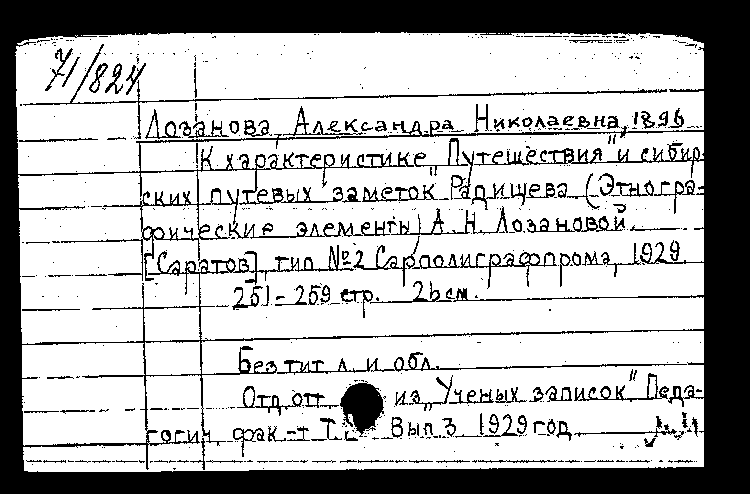 71/824
Лозанова, Александра Николаевна, 1896
К характеристике „Путешествия" и сибир-
ских путевых заметок" Радищева (Этногра-
фические элементы) А. Н. Лозановой.
[Саратов], тип. №2 Сарполиграфпрома, 1929.
251-259 стр. 26 см.
Без тит. л. и обл.
Отд. отт. из „Ученых записок" Педа-
гогич. фак-т Т. Вып. 3 1929 год